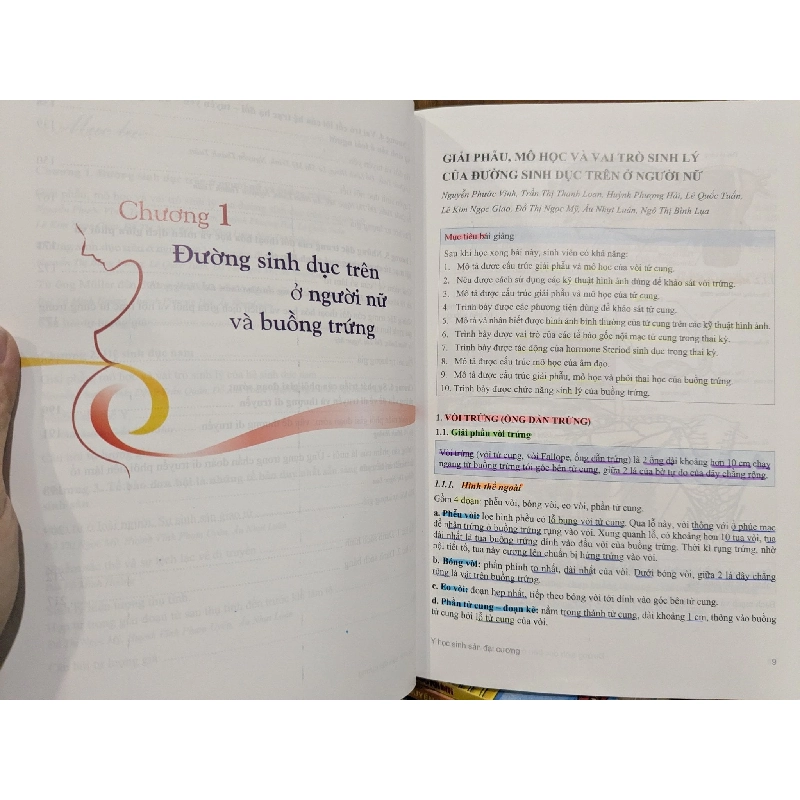 Chương 1
Đường sinh dục trên
ở người nữ
và buồng trứng
GIẢI PHẪU, MÔ HỌC VÀ VAI TRÒ SINH LÝ
CỦA ĐƯỜNG SINH DỤC TRÊN Ở NGƯỜI NỮ
Nguyễn Phước Vinh, Trần Thị Thanh Loan, Huỳnh Phượng Hải, Lê Quốc Tuấn,
Lê Kim Ngọc Giao, Đỗ Thị Ngọc Mỹ, Âu Nhựt Luân, Ngô Thị Bình Lụa
Mục tiêu bài giảng
Sau khi học xong bài này, sinh viên có khả năng:
1. Mô tả được cấu trúc giải phẫu và mô học của vòi tử cung.
2. Nêu được cách sử dụng các kỹ thuật hình ảnh dùng để khảo sát vòi trứng.
3. Mô tả được cấu trúc giải phẫu và mô học của tử cung.
4. Trình bày được các phương tiện dùng để khảo sát tử cung.
5. Mô tả và nhận biết được hình ảnh bình thường của tử cung trên các kỹ thuật hình ảnh.
6. Trình bày được vai trò của các tế bào gốc nội mạc tử cung trong thai kỳ.
7. Trình bày được tác động của hormone Steriod sinh dục trong thai kỳ.
8. Mô tả được cấu trúc mô học của âm đạo.
9. Mô tả được cấu trúc giải phẫu, mô học và phôi thai học của buồng trứng.
10. Trình bày được chức năng sinh lý của buồng trứng.
1. VÒI TRỨNG (ỐNG DẪN TRỨNG)
1.1. Giải phẫu vòi trứng
Vòi trứng (vòi tử cung, vòi Fallope, ống dẫn trứng) là 2 ống dài khoảng hơn 10 cm chạy
ngang từ buồng trứng tới góc bên tử cung, giữa 2 lá của bờ tự do của dây chằng rộng.
1.1.1. Hình thể ngoài
Gồm 4 đoạn: phễu vòi, bóng vòi, eo vòi, phần tử cung.
a. Phễu vòi: lọc hình phễu có lỗ bụng vòi tử cung. Qua lỗ này, vòi thông với ổ phúc mạc
để nhận trứng ở buồng trứng rụng vào vòi. Xung quanh lỗ, có khoảng hơn 10 tua vòi, tua
dài nhất là tua buồng trứng dính vào đầu vòi của buồng trứng. Thời kì rụng trứng, nhờ
nội tiết tố, tua này cương lên chuẩn bị hứng trứng vào vòi.
b. Bóng vòi: phần phình to nhất, dài nhất của vòi. Dưới bóng vòi, giữa 2 lá dây chằng
rộng là vật trên buồng trứng.
c. Eo vòi: đoạn hẹp nhất, tiếp theo bóng vòi tới dính vào góc bên tử cung.
d. Phần tử cung – đoạn kẽ: nằm trong thành tử cung, dài khoảng 1 cm, thông vào buồng
tử cung bởi lỗ tử cung của vòi.
Y học sinh sản đại cương
9